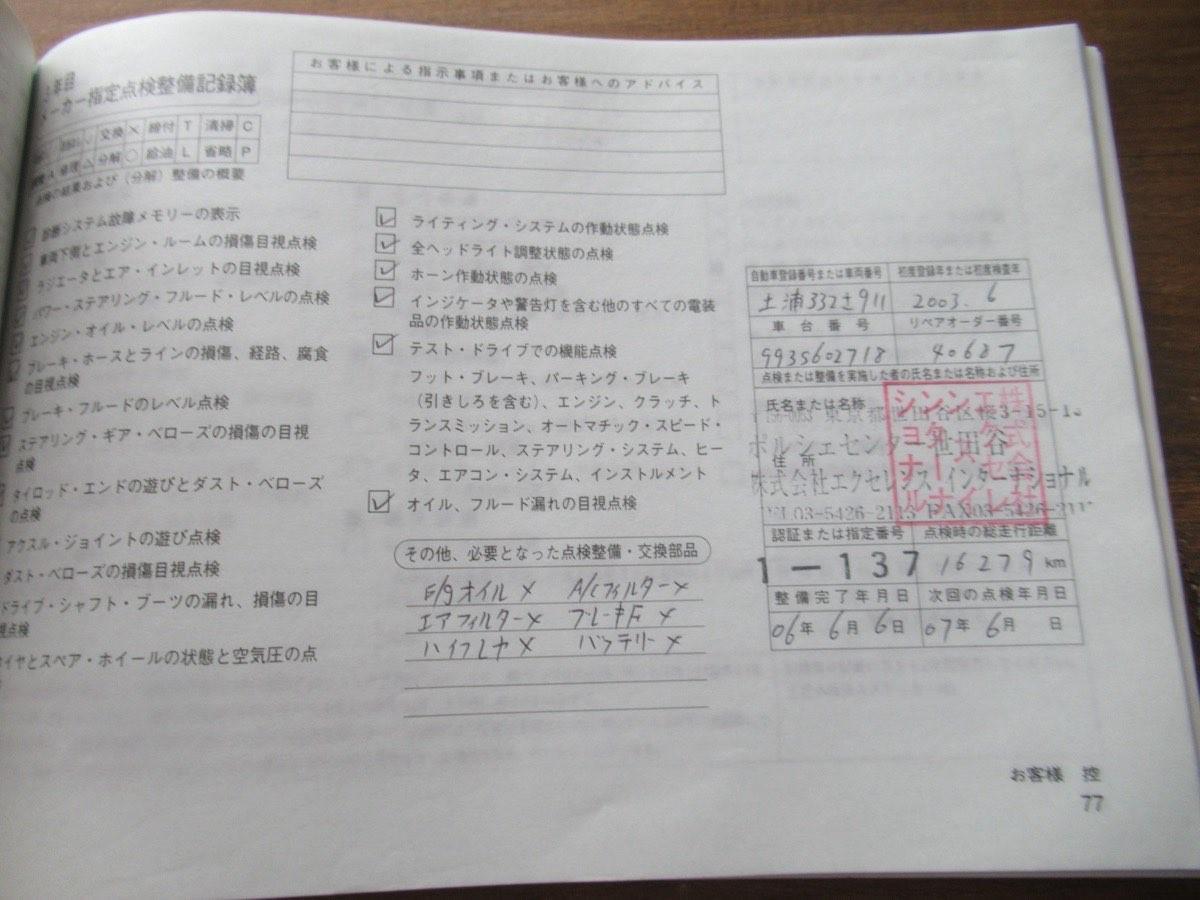 年目
カー指定点検整備記録簿
交換 × 締付 T 清掃 C
修理 △ 分解 ○ 給油 L 省略 P
点検の結果および（分解）整備の概要
診断システム故障メモリーの表示
車両下側とエンジン・ルームの損傷目視点検
ラジエータとエア・インレットの目視点検
パワー・ステアリング・フルード・レベルの点検
エンジン・オイル・レベルの点検
ブレーキ・ホースとラインの損傷、経路、腐食
の目視点検
ブレーキ・フルードのレベル点検
ステアリング・ギア・ベローズの損傷の目視
点検
タイロッド・エンドの遊びとダスト・ベローズ
の点検
アクスル・ジョイントの遊び点検
ダスト・ベローズの損傷目視点検
ドライブ・シャフト・ブーツの漏れ、損傷の目
視点検
イヤとスペア・ホイールの状態と空気圧の点
お客様による指示事項またはお客様へのアドバイス
ライティング・システムの作動状態点検
全ヘッドライト調整状態の点検
ホーン作動状態の点検
インジケータや警告灯を含む他のすべての電装
品の作動状態点検
テスト・ドライブでの機能点検
フット・ブレーキ、パーキング・ブレーキ
（引きしろを含む）、エンジン、クラッチ、ト
ランスミッション、オートマチック・スピード・
コントロール、ステアリング・システム、ヒー
タ、エアコン・システム、インストルメント
オイル、フルード漏れの目視点検
その他、必要となった点検整備・交換部品
E/gオイル × A/Cフィルター ×
エアフィルター × ブレーキF ×
ワイパーレヤ × バッテリー ×
自動車登録番号または車両番号 初度登録年または初度検査年
土浦332 911 2003.6
車台番号 リペアオーダー番号
993S602718 40687
点検または整備を実施した者の氏名または名称および住所
氏名または名称
東京都世田谷区桜3-15-1
ポルシェセンター世田谷
住所
株式会社エクセレンス インターナショナル
TEL03-5426-2113 FAX03-5426-211
株式会社
エクセレンス
インターナ
ショナル
認証または指定番号 点検時の総走行距離
1-137 16279 km
整備完了年月日 次回の点検年月日
06年 6月 6日 07年 6月 日
お客様 控
77